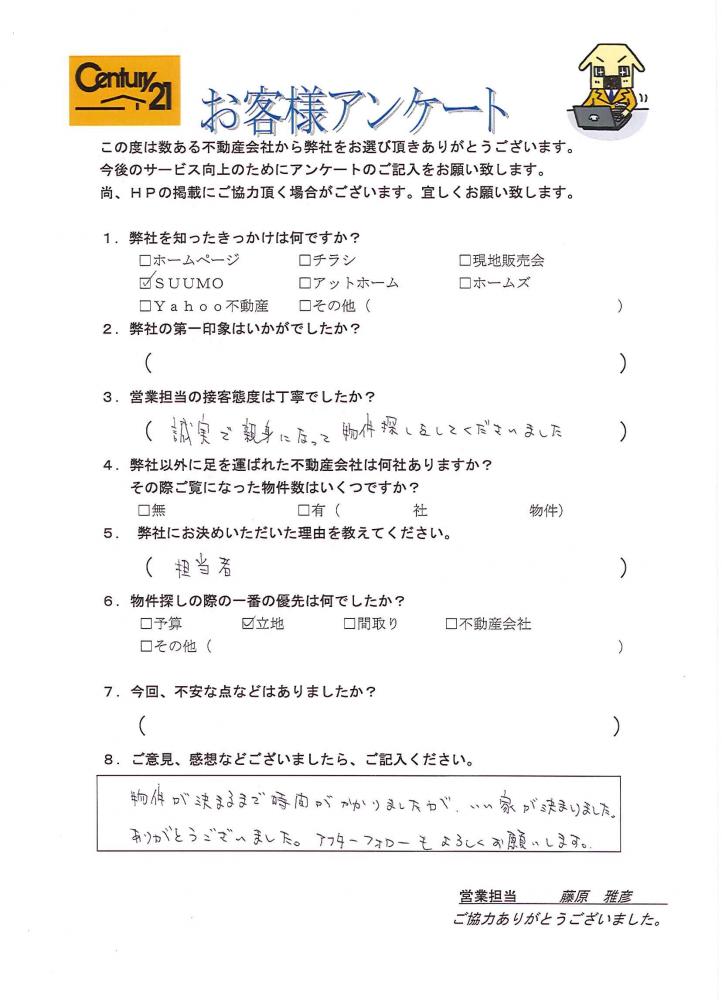 Century 21
お客様アンケート
この度は数ある不動産会社から弊社をお選び頂きありがとうございます。
今後のサービス向上のためにアンケートのご記入をお願い致します。
尚、ＨＰの掲載にご協力頂く場合がございます。宜しくお願い致します。
１．弊社を知ったきっかけは何ですか？
□ホームページ □チラシ □現地販売会
☑ＳＵＵＭＯ □アットホーム □ホームズ
□Ｙａｈｏｏ不動産 □その他（ ）
２．弊社の第一印象はいかがでしたか？
（ ）
３．営業担当の接客態度は丁寧でしたか？
（ 誠実で親身になって物件探しをしてくださいました ）
４．弊社以外に足を運ばれた不動産会社は何社ありますか？
その際ご覧になった物件数はいくつですか？
□無 □有（ 社 物件）
５． 弊社にお決めいただいた理由を教えてください。
（ 担当者 ）
６．物件探しの際の一番の優先は何でしたか？
□予算 ☑立地 □間取り □不動産会社
□その他（ ）
７．今回、不安な点などはありましたか？
（ ）
８．ご意見、感想などございましたら、ご記入ください。
物件が決まるまで時間がかかりましたが、いい家が決まりました。
ありがとうございました。アフターフォローもよろしくお願いします。
営業担当 藤原 雅彦
ご協力ありがとうございました。